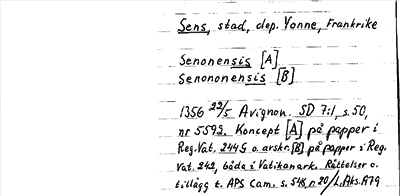 Sens, stad, dep. Yonne, Frankrike
Senonensis [A]
Senononensis [B]
1356 22/5 Avignon. SD 7:1, s. 50,
nr 5593. Koncept [A] på papper i
Reg. Vat. 244 G o. avskr. [B] på papper i Reg.
Vat. 242, båda i Vatikanark. Rättelser o.
tillägg t. APS Cam. s. 548, n 20/L. Aks. 1979